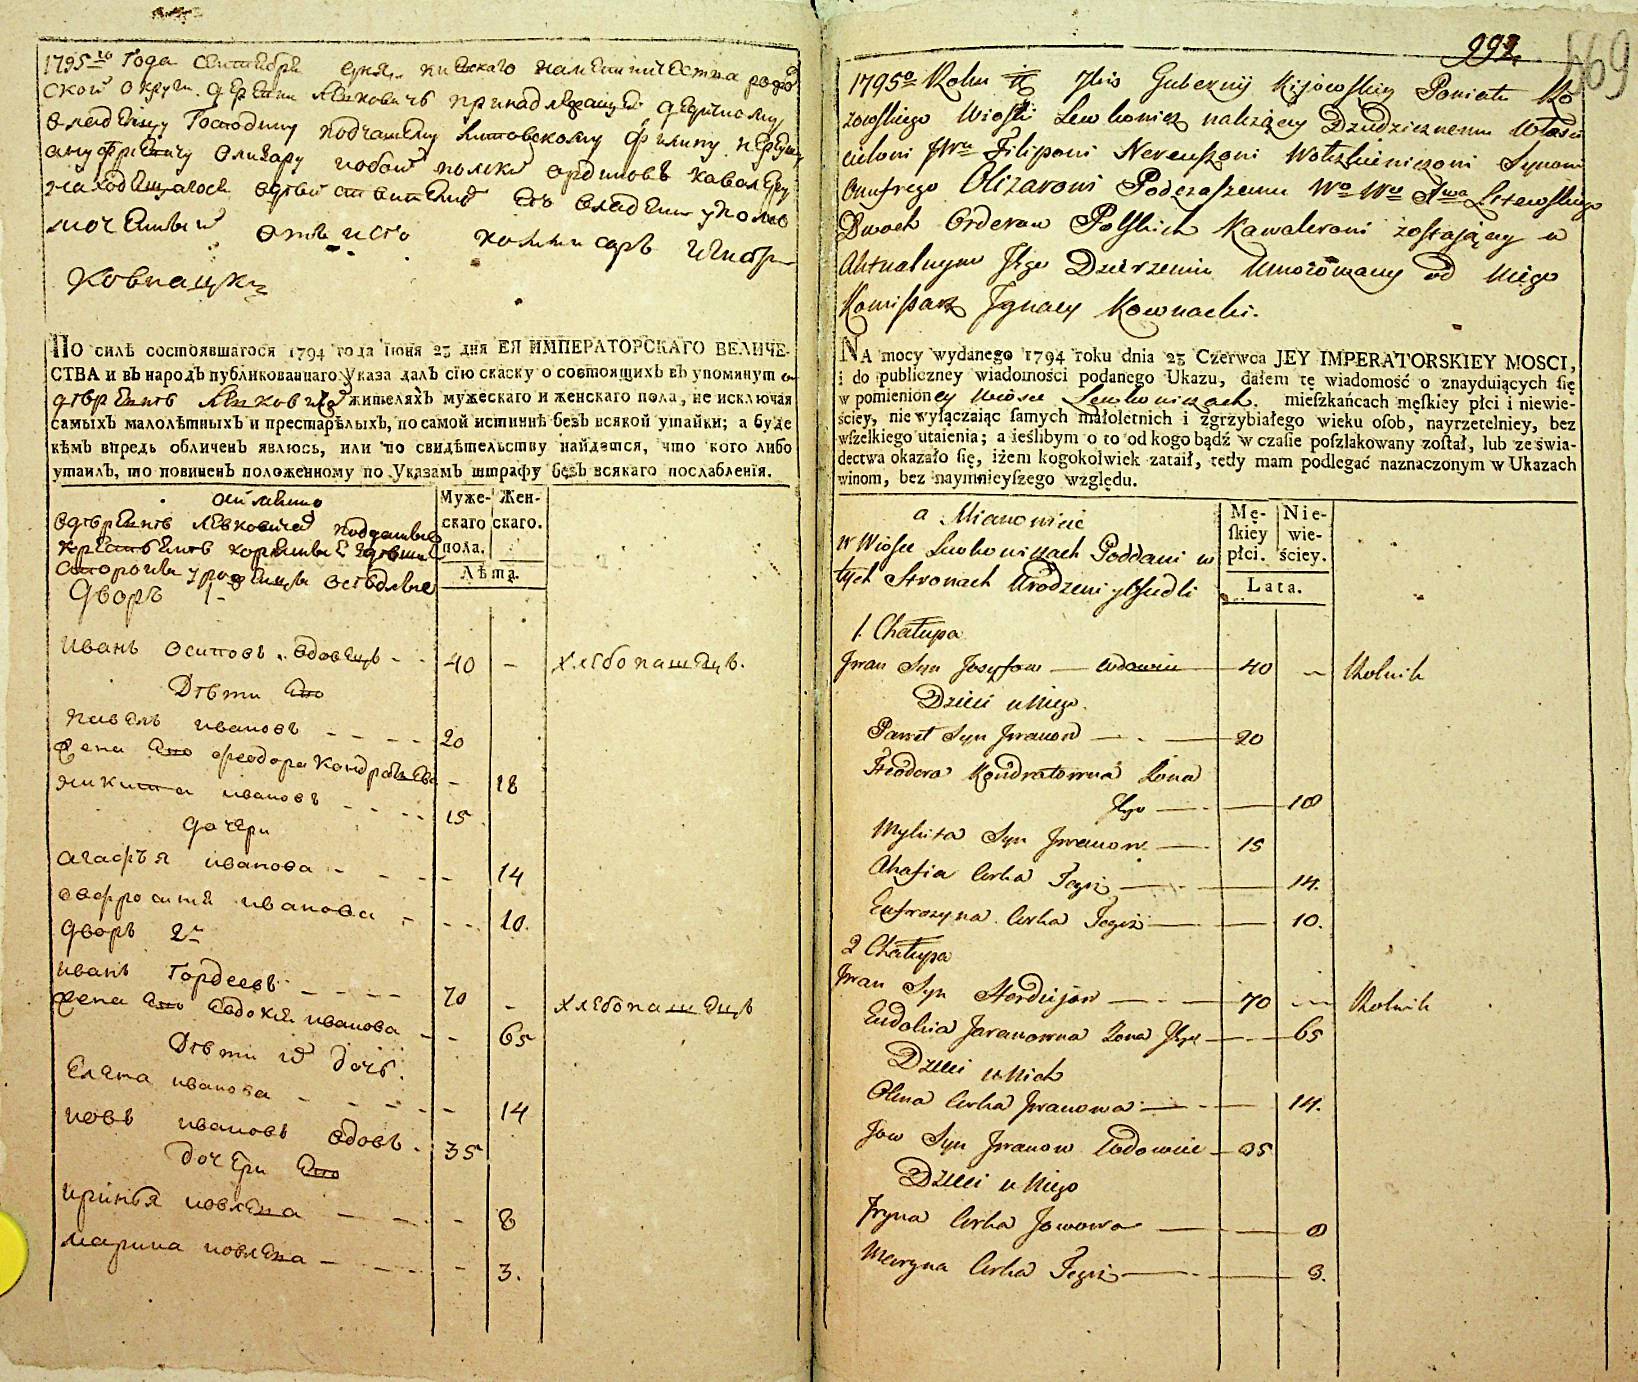 1795го Года Сентебря дня, киевскаго наместничества радо
ской округи, деревни Левковичь принадлежащей дедичному
владельцу Господину подчашему Литовскому Филипу Нереушу
ануфриевичу Олизару обой полски ординовъ кавалеру
находещагося вдействителном его владении уполно
моченный отъ исго коммисаръ Игнат
Ковнацки
ПО силѣ состоявшагося 1794 года Iюня 23 дня ЕЯ ИМПЕРАТОРСКАГО ВЕЛИЧЕ-
СТВА и въ народъ публикованнаго Указа далъ сїю скаску о состоящихъ въ упомянут
деревне Левковичей жителяхъ мужескаго и женскаго пола, не исключая
самыхъ малолѣтныхъ и престарѣлыхъ, по самой истиннѣ безъ всякой утайки; а буде
кѣмъ впредь обличенъ явлюсь, или по свидѣтельству найдется, что кого либо
утаилъ, то повиненъ положенному по Указамъ штрафу безъ всякаго послабленїя.
аимянно
вдеревне Левковичей подданые
крестьяне коренные здешни
стороны уроженцы оседлые
Муже- Жен-
скаго скаго.
пола.
Лѣта.
Дворъ 1
иванъ осиповъ вдовецъ - - 40 - хлебопашецъ.
Дети Ево
павелъ ивановъ - - - - 20
Жена Ево феодора Кондратьева - 18
никита ивановъ - - - - 15
дочери
агафья иванова - - - - 14
евфросиния иванова - - - 10.
дворъ 2й
иванъ Гордеевъ - - - - 70 - хлебопашецъ
Жена Ево Евдокия иванова - - 65
Дети их дочь.
Елена иванова - - - - - 14
иовъ ивановъ вдовъ. 35
дочери Ево
иринья иовлева - - - 8
марина иовлева - - - - 3.
992
569
1795o Roku 7bris Gubernij Kijowskiey Powiatu Ra
domskiego Wioski Lewkowicz należącey Dziedzicznemu Właści
cielowi JWu Filipowi Nereuszowi Synowi
Onufrego Olizarowi Podczaszemu Wo Wu Xwa Litewskiego
Dwoch Orderow Polskich Kawalerowi zostającey w
Aktualnym Jego Dzierzeniu Umocowany od niego
Komissarz Ignacy Kownacki.
NA mocy wydanego 1794 roku dnia 23 Czerwca JEY IMPERATORSKIEY MOSCI,
i do publiczney wiadomości podanego Ukazu, dałem tę wiadomość o znayduiących się
w pomienioney Wiosce Lewkowiczach. mieszkańcach męskiey płci i niewie-
ściey, nie wyłączaiąc samych małoletnich i zgrzybiałego wieku osób, nayrzetelniey, bez
wszelkiego utaienia; a ieślibym o to od kogo bądź w czasie poszlakowany został, lub ze świa-
dectwa okazało się, iżem kogokolwiek zataił, tedy mam podlegać naznaczonym w Ukazach
winom, bez naymnieyszego względu.
a Mianowicie
w Wiosce Lewkowiczach Poddani w
tych Stronach Urodzeni y Osiedli
Mę- Nie-
skiey wie-
płci. ściey.
Lata.
1. Chałupa
Jwan Syn Josypow — wdowiec 40 — Rolnik
Dzieci u niego.
Paweł Syn Jwanow — 20
Feodora Kondratowna Zona
Jego — 18
Mykita Syn Jwanow — 15
Ahafia Corka Tegoż — 14.
Eufrozyna Corka Tegoż — 10.
2 Chałupa
Jwan Syn Hordiejow — 70 — Rolnik
Eudokia Jwanowna Zona Jego — 65
Dzieci u Nich
Olena Corka Jwanowa — 14.
Jow Syn Jwanow Wdowiec — 35
Dzieci u Niego
Jryna Corka Jowowa — 8
Maryna Corka Tegoż — 3.